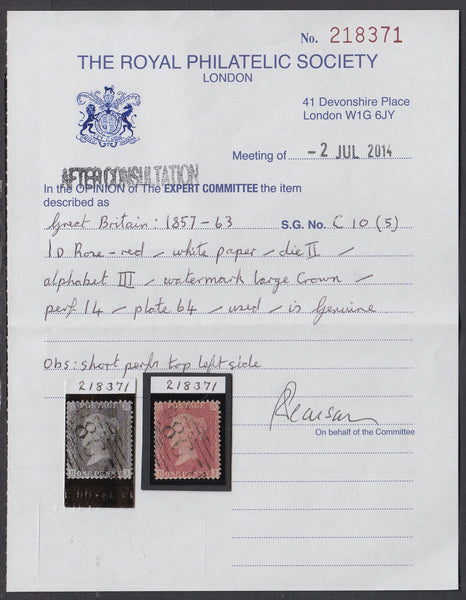 No. 218371
THE ROYAL PHILATELIC SOCIETY
LONDON
41 Devonshire Place
London W1G 6JY
Meeting of -2 JUL 2014
AFTER CONSULTATION
In the OPINION of The EXPERT COMMITTEE the item
described as
Great Britain: 1857-63 S.G. No. C 10 (5)
1D Rose-red / white paper / die II /
alphabet III / watermark large Crown /
perf. 14 / plate 64 / used / is Genuine
Obs: short perfs top left side
218371 218371
POSTAGE POSTAGE
8 8
ONE PENNY ONE PENNY
On behalf of the Committee